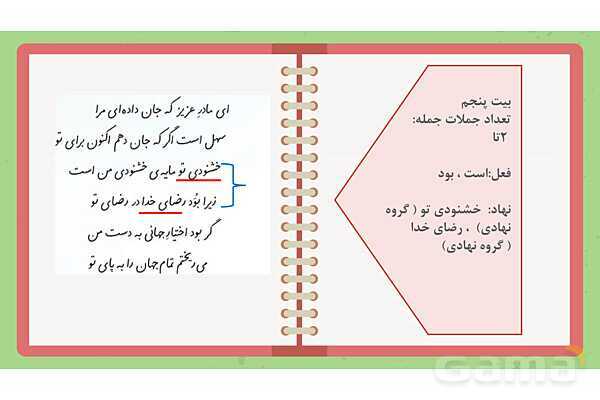 بیت پنجم
تعداد جملات جمله:
۲تا
فعل:است ، بود
نهاد: خشنودی تو ( گروه
نهادی) ، رضای خدا
( گروه نهادی)
ای مادرِ عزیز که جان داده‌ای مرا
سهل است اگر که جان دهم اکنون برای تو
خشنودی تو مایه‌ی خشنودی من است
زیرا بوَد رضای خدا در رضای تو
گر بود اختیارِ جهانی به دست من
می‌ریختم تمام جهان را به پای تو
Gama